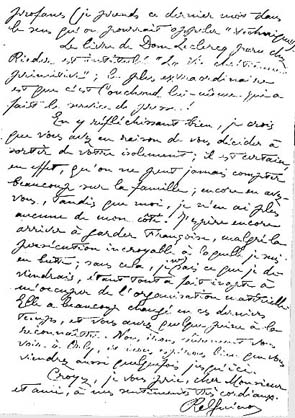 profane (je prends ce dernier mot dans
le sens qu'on pourrait appeler "technique").
Le livre de Dom Leclercq paru chez
Rieder est intitulé "La Vie chrétienne
primitive"; le plus extraordinaire
est que c'est Couchoud lui-même qui a
fait le service de presse..!
En y réfléchissant bien, je crois
que vous avez eu raison de vous décider à
sortir de votre isolement; il est certain,
en effet, qu'on ne peut jamais compter
beaucoup sur la famille; encore en avez-
vous, tandis que moi, je n'en ai plus
aucune de mon côté. J'espère encore
arriver à garder Françoise, malgré la
persécution incroyable à laquelle je suis
en butte; sans cela, je ne sais ce que je de-
viendrais, étant tout à fait inapte à
m'occuper de l'organisation matérielle.
Elle a beaucoup changé en ces derniers
temps, et vous aurez quelque peine à la
reconnaître. Nous irons sûrement vous
voir à ; mais j'espère bien que vous
viendrez aussi quelquefois jusqu'ici.
Croyez, je vous prie, cher Monsieur
et ami, à mes sentiments très cordiaux.